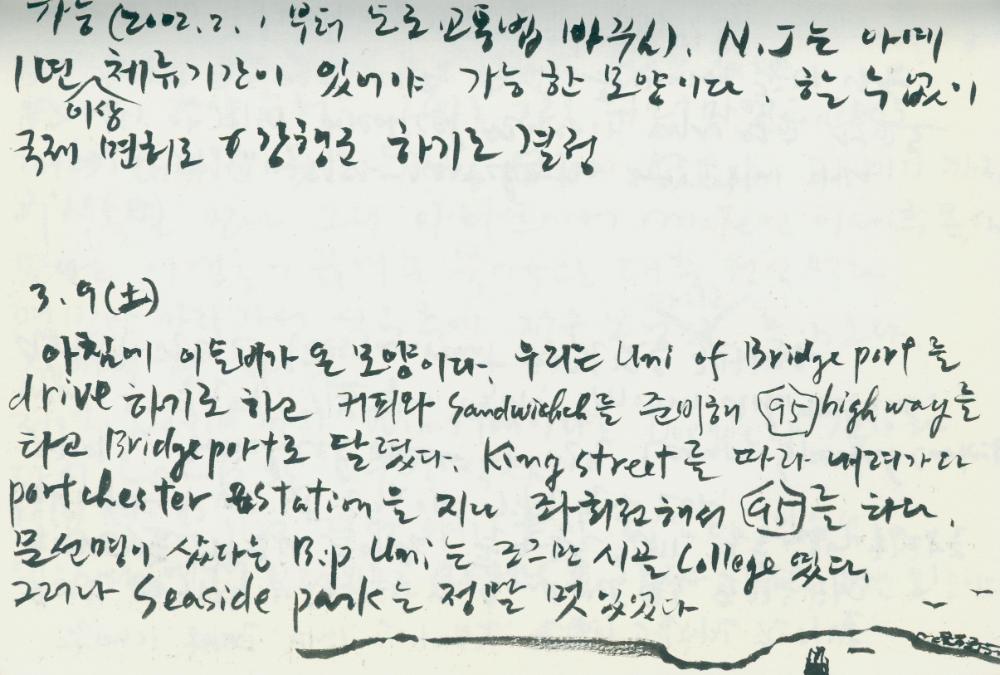 가능(2002. 2. 1 부터 도로 교통법 바뀌심). N.J는 아예
1년 체류기간이 있어야 가능한 모양이다. 하는 수 없이
이상
국제 면허로 강행군 하기로 결정
3. 9 (土)
아침에 이슬비가 온 모양이다. 우리는 Uni of Bridgeport를
drive 하기로 하고 커피와 Sandwichch를 준비해 95 highway를
타고 Bridgeport로 달렸다. King street를 따라 내려가다
portchester station을 지나 좌회전해서 95를 타다.
문선명이 샀다는 B.p Uni.는 조그만 시골 College였다.
그러나 Seaside park는 정말 멋있었다